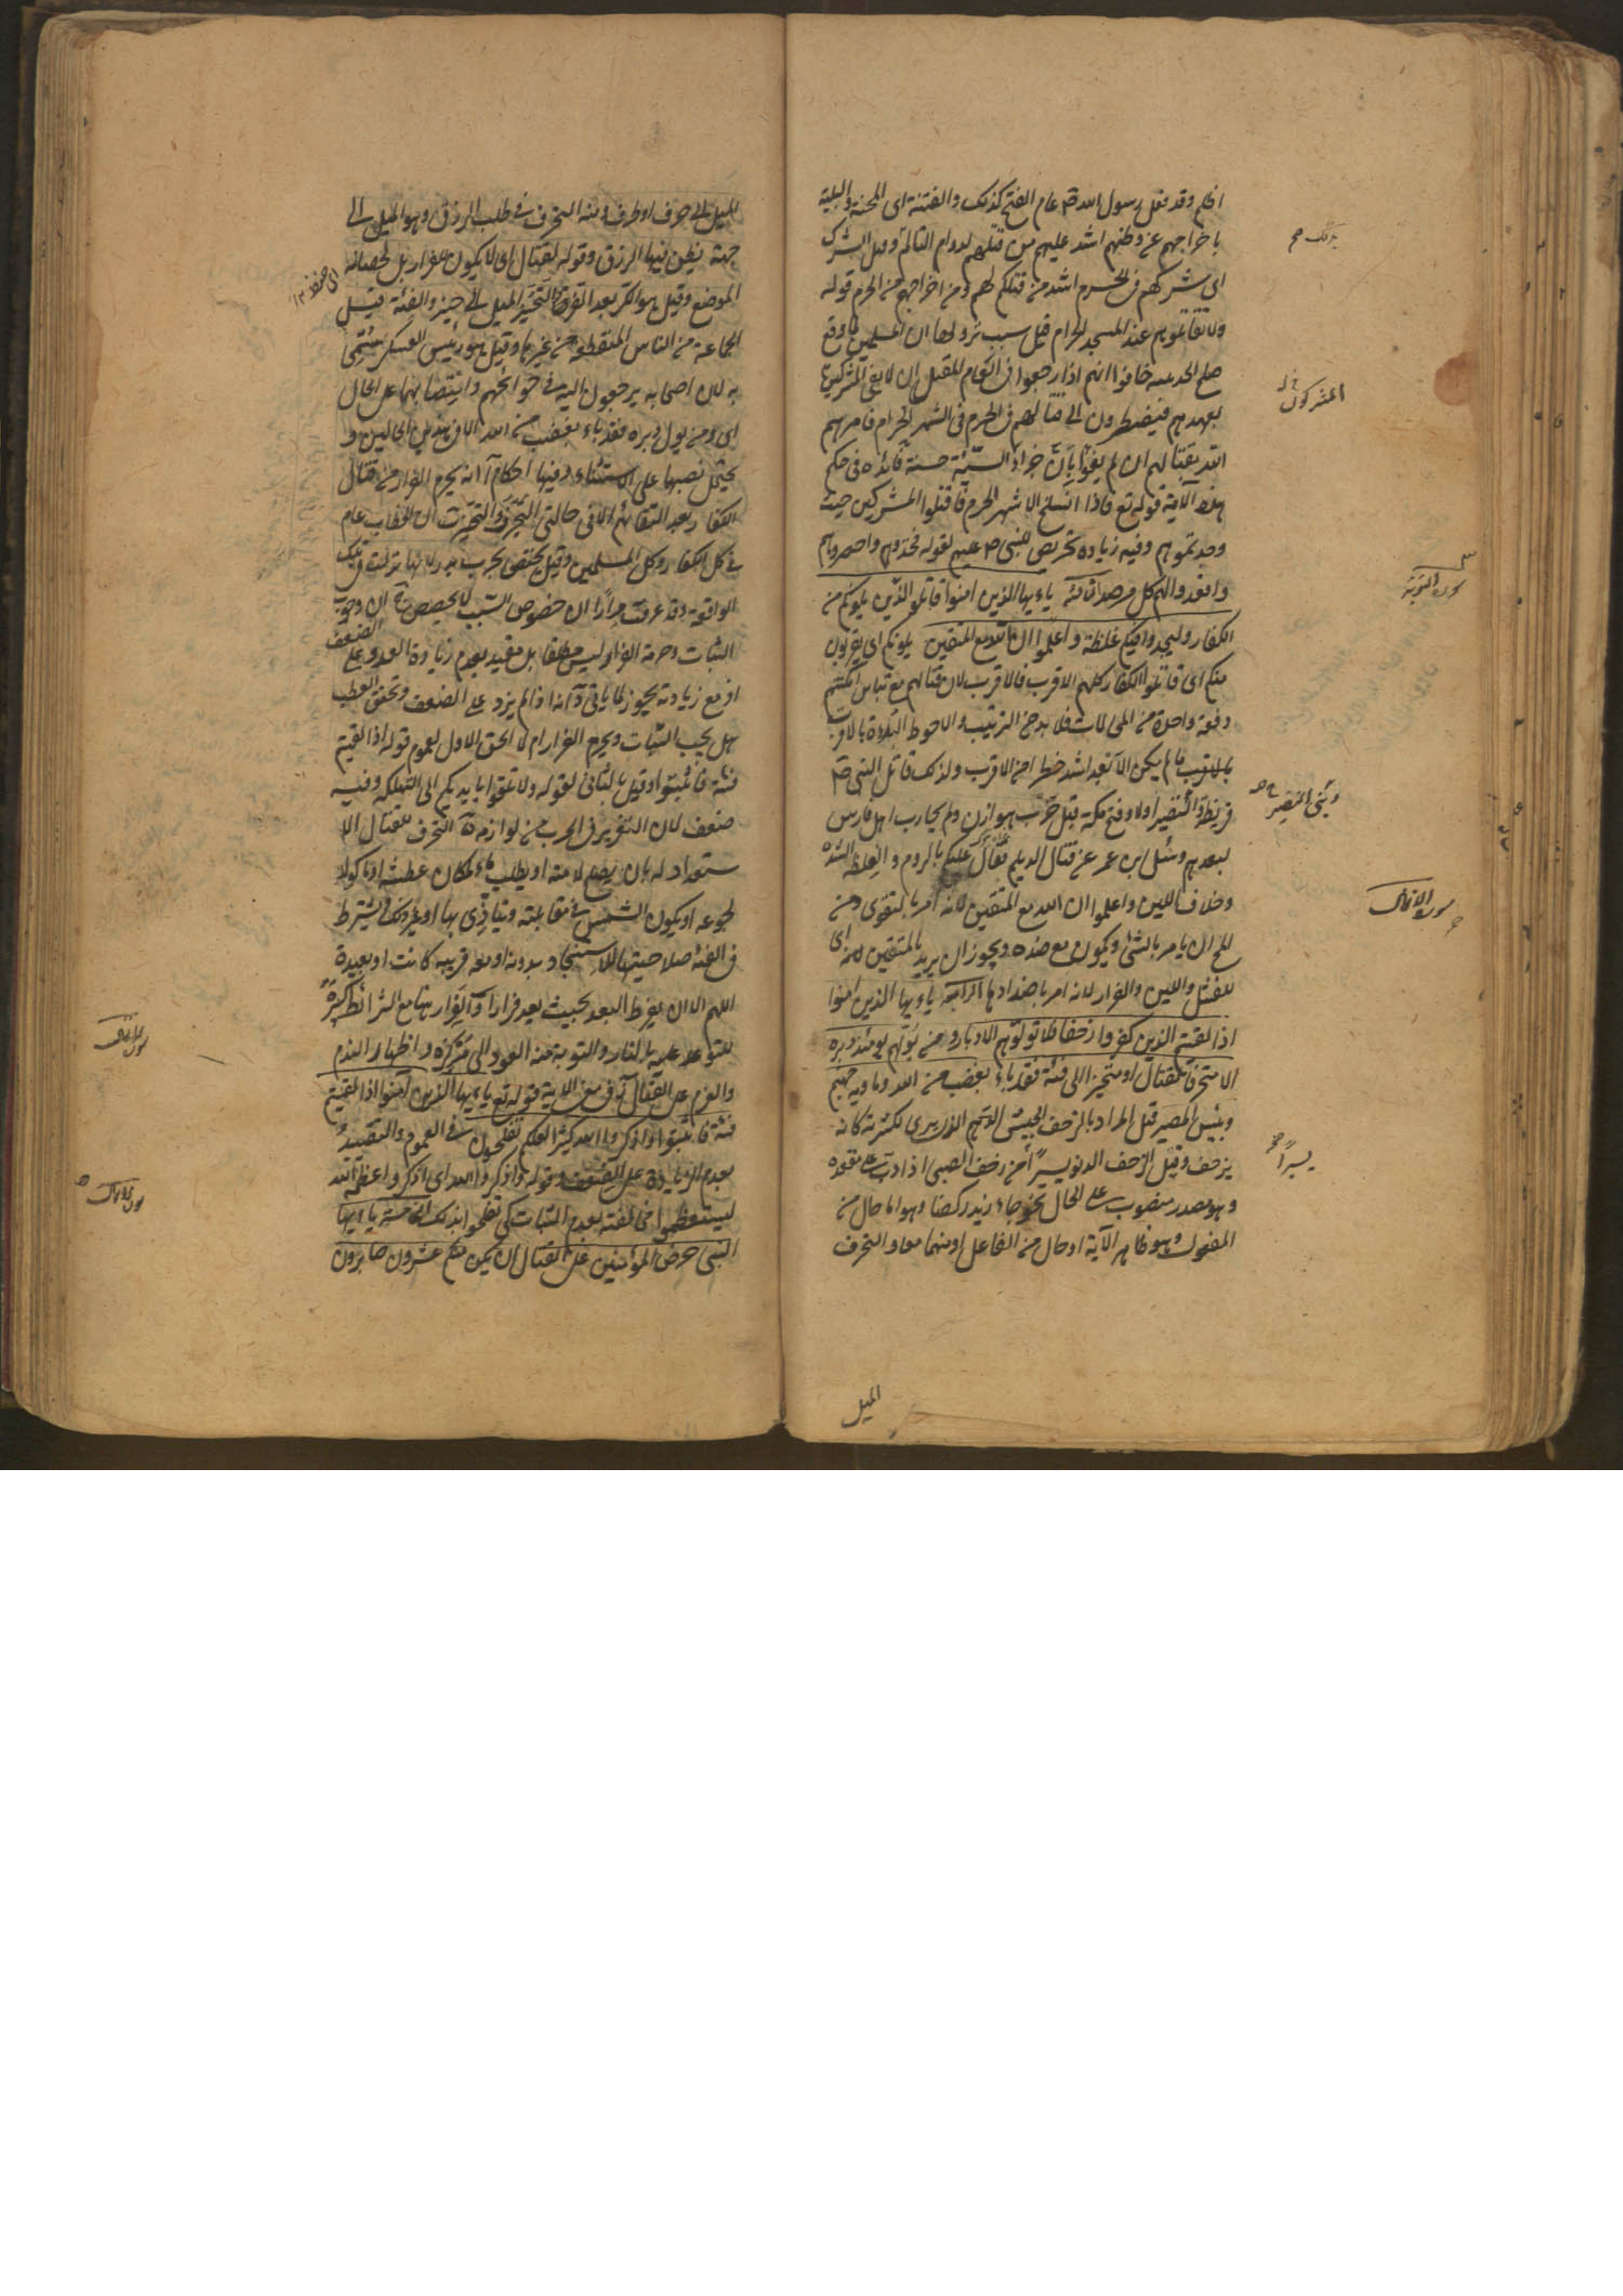 اخلهم وقد فعل رسول الله ص عام الفتح كذلك والفتنة اى المحنة والبلية
باخراجهم عن وطنهم اشد عليهم من قتلهم لدوام التالم وقيل الشرك
اى شركهم فى الحرم اشد من قتلكم لهم ومن اخراجهم من الحرم قوله
ولا تقاتلوهم عند المسجد الحرام قيل سبب نزولها ان المسلمين لما وقع
صلح الحديبيه خافوا انهم اذا رجعوا فى العام المقبل ان لا يفى المشركين
بعهدهم فيضطرون الى قتالهم فى الحرم فى الشهر الحرام فامرهم
الله بقتالهم ان لم يفوا بان جزاء السيئة حسنة فائدة فى حكم
هذه الآية قوله تع فاذا انسلخ الاشهر الحرم فاقتلوا المشركين حيث
وجدتموهم وفيه زيادة تحريص للنبى ص عليهم لقوله فخذوهم واحصروهم
واقعدوا لهم كل مرصد الثالثة ياءيها الذين امنوا قاتلوا الذين يلونكم من
الكفار وليجدوا فيكم غلظة واعلموا ان الله مع المتقين يلونكم اى يقربون
منكم اى قاتلوا الكفار كلهم الاقرب فالاقرب لان قتالهم مع تباين امكنتهم
دفعة واحدة من المحالات فلا بد من الترتيب والاحوط البداة بالاقرب
بالاقرب ما لم يكن الابعد اشد خطرا من الاقرب ولذلك قاتل النبى ص
قريظة والنضير اولا وفتح مكة قبل حرب هوازن ولم يحارب اهل فارس
لبعدهم وسئل ابن عمر عن قتال الديلم فقال عليكم بالروم والغلظة الشدة
وخلاف اللين واعلموا ان الله مع المتقين لانه امر بالتقوى ومن
المح ان يامر بالشئ ويكون مع ضده ويجوز ان يريد بالمتقين لله اى
للفشل واللين والفرار لانه امر باضدادها الرابعة ياءيها الذين امنوا
اذا لقيتم الذين كفروا زحفا فلا تولوهم الادبار ومن يولهم يومئذ دبره
الا متحرفا لقتال او متحيزا الى فئة فقد باء بغضب من الله وماويه جهنم
وبئس المصير قيل المراد بالزحف الجيش الدهم الذى يرى لكثرته كانه
يزحف وقيل الزحف الدنو يسيرا من زحف الصبى اذا دب على مقعده
وهو مصدر منصوب على الحال نحو جاء زيد ركضا وهو اما حال من
المفعول وهو ظاهر الآية او حال من الفاعل او منهما معا والتحرف
الميل
المشركون
سورة التوبة
وبنى النضير
سورة الانفال
يسيرا صح
الميل الى حرف او طرف ومنه التحرف فى طلب الرزق وهو الميل الى
جهة يظن فيها الرزق وقوله لقتال اى لا يكون للفرار بل لحصانة
الموضع وقيل هو الكر بعد الفر والتحيز الميل الى حيز والفئة قيل
الجماعة من الناس المنقطعة من غيرها وقيل هو رئيس العسكر سمى
به لان اصحابه يرجعون اليه فى حوائجهم وانتصابهما على الحال
اى ومن يول دبره فقد باء بغضب من الله الا فى هذين الحالين و
يحتمل نصبها على الاستثناء وفيها احكام آ انه يحرم الفرار من قتال
الكفار بعد التقائهم الا فى حالتى التحرف والتحيز ب ان الخطاب عام
فى كل الكفار وكل المسلمين وقيل يختص بحرب بدر لانها نزلت فى تلك
الواقعة وقد عرفت مرارا ان خصوص السبب لا يخصص ج ان وجوب
الثبات وحرمة الفرار ليس مطلقا بل مقيد بعدم زيادة العدو على الضعف
اذ مع زيادته يجوز لما ياتى د انه اذا لم يزد على الضعف وتحقق العطب
هل يجب الثبات ويحرم الفرار ام لا الحق الاول لعموم قوله اذا لقيتم
فئة فاثبتوا وقيل بالثانى لقوله ولا تلقوا بايديكم الى التهلكة وفيه
ضعف لان التغرير فى الحرب من لوازمه ه التحرف للقتال الا
ستعداد له بان يصلح لامته او يطلب الماء لمكان عطشه او ماكولا
لجوعه او يكون الشمس فى مقابلته ويتاذى بها او غير ذلك ويشترط
فى الفئة صلاحيتها للاستنجاد بدونه او معه قريبة كانت او بعيدة
اللهم الا ان يفرط البعد بحيث يعد فرارا و الفرار هنا مع الشرائط كبيرة
للتوعد عليه بالنار والتوبة منه العود الى مركزه واظهار الندم
والعزم على القتال ز فى معنى الاية قوله تع ياءيها الذين امنوا اذا لقيتم
فئة فاثبتوا واذكروا الله كثيرا لعلكم تفلحون فى العموم والتقييد
بعدم الزيادة على الضعف وقوله واذكروا الله اى اذكروا عظمة الله
ليستعظموا مخالفته بعدم الثبات كى تفلحوا بذلك الخامسة ياءيها
النبى حرض المؤمنين على القتال ان يكن منكم عشرون صابرون
سورة الانفال
سورة الانفال